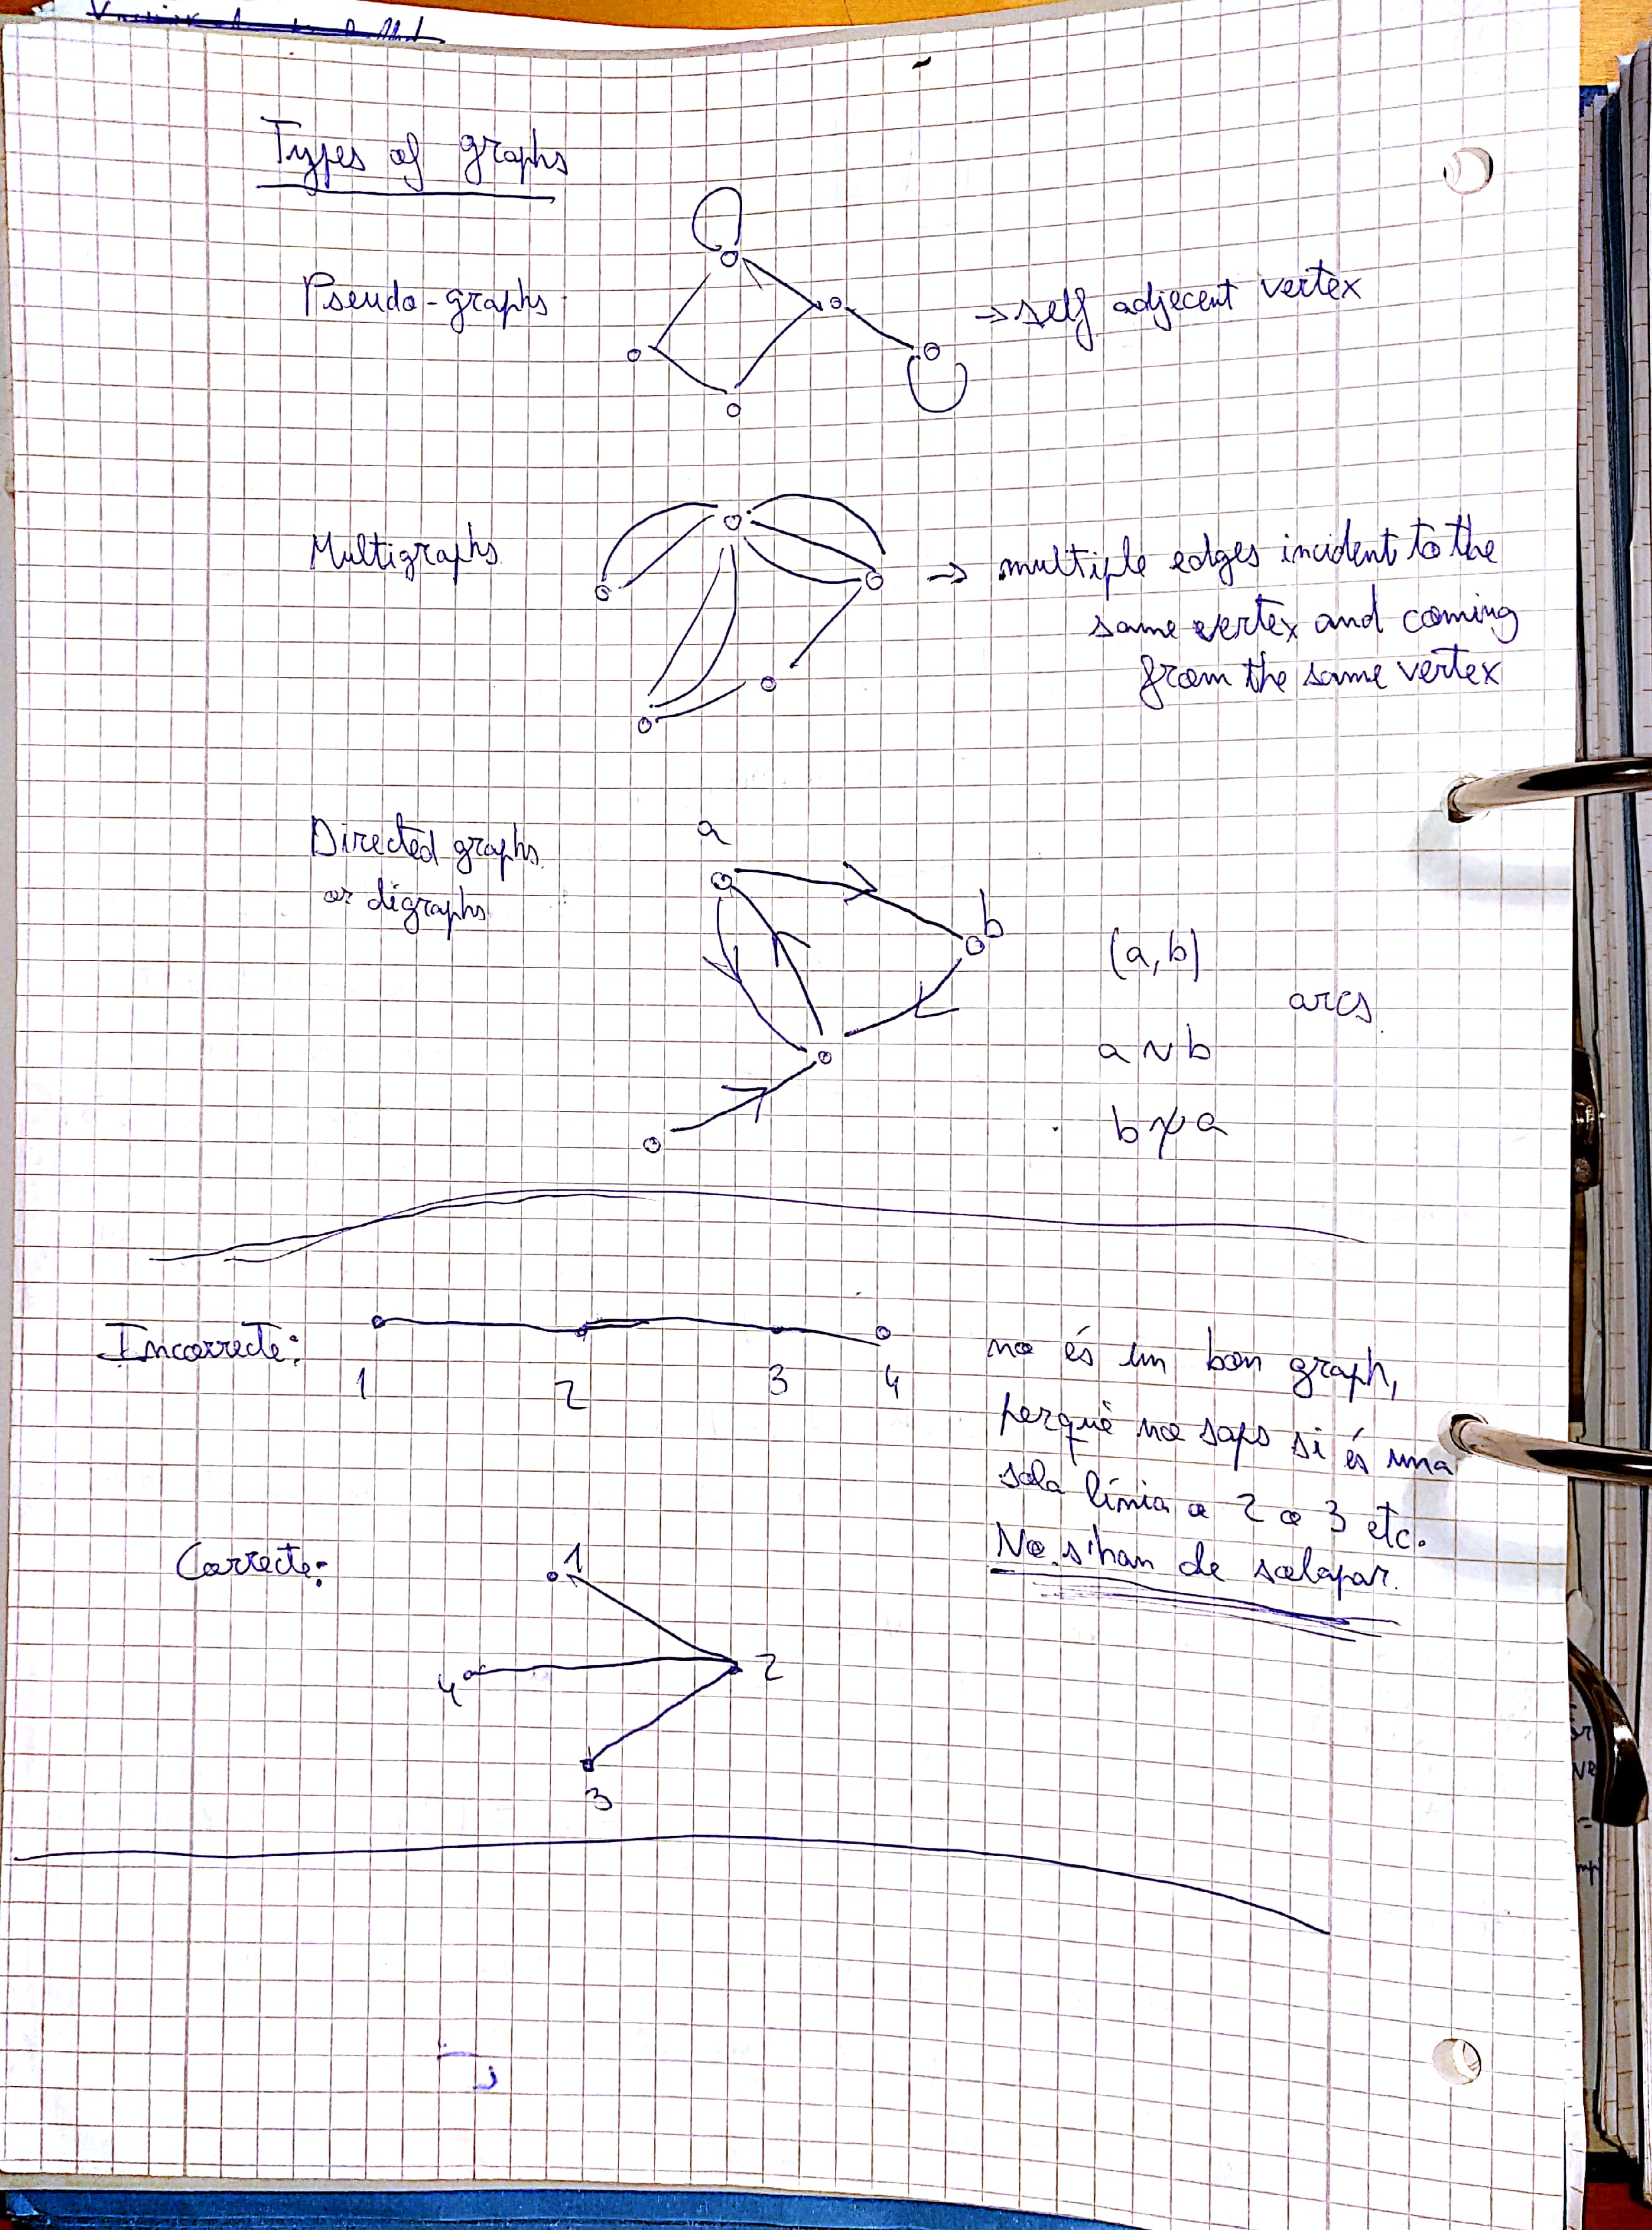 Types of graphs
Pseudo-graphs
→ self adjecent vertex
Multigraphs
→ multiple edges incident to the
same vertex and coming
from the same vertex
Directed graphs
or digraphs
a
b
(a,b)
arcs
a ~ b
b ≁ a
Incorrecte:
1 2 3 4
no és un bon graph,
perquè no saps si és una
sola línia o 2 o 3 etc.
No s'han de solapar.
Correcte:
1
4
2
3